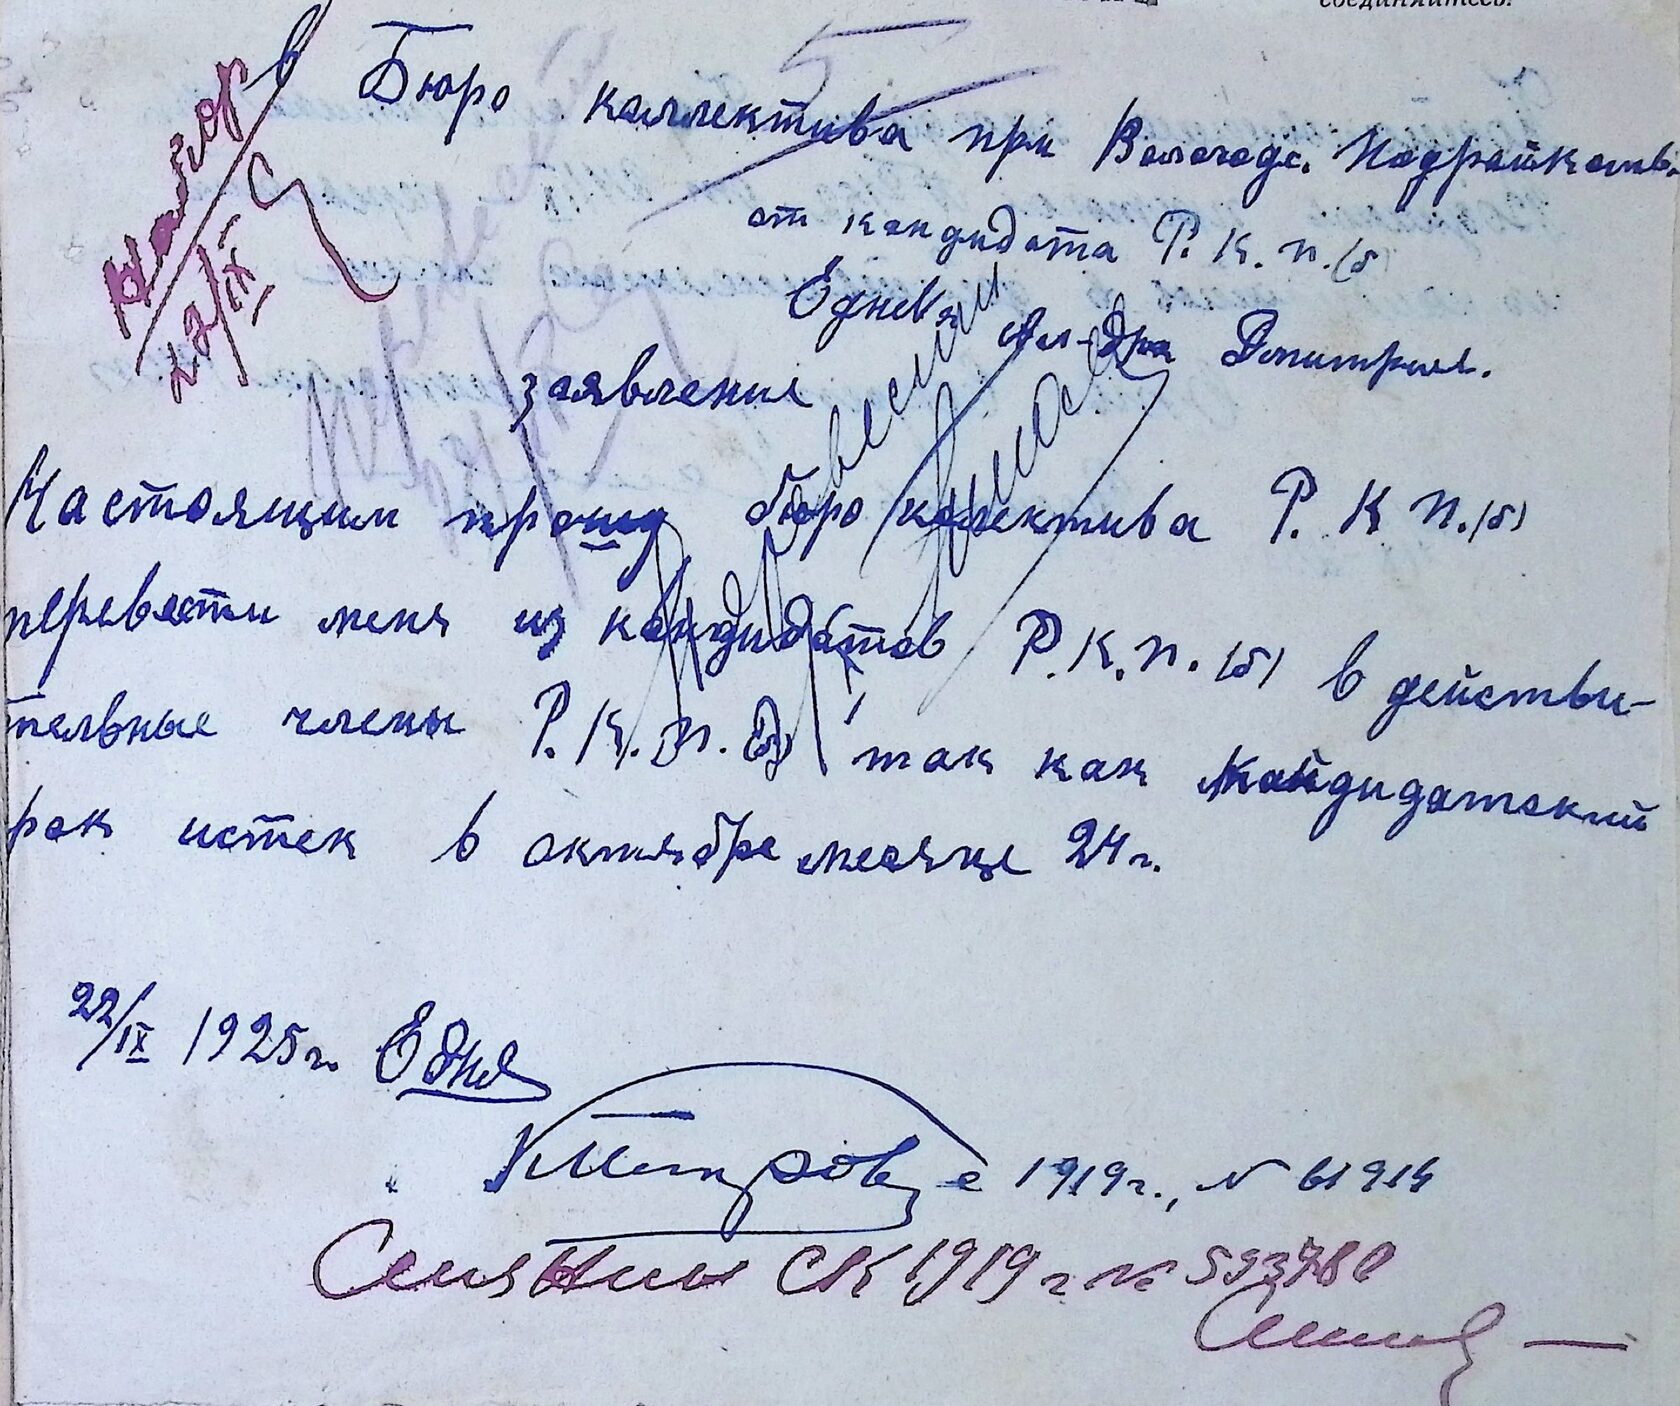 соединяйтесь!
в Бюро коллектива при Вологодс. Подрайком.
от кандидата Р. К. П. (б)
Ал-дра Дмитрия.
заявление
Настоящим прошу бюро колектива Р. К П. (б)
перевести меня из кандидатов Р. К. П. (б) в действи-
тельные члены Р. К. П. (б) так как кандидатский
рок истек в октябре месяце 24 г.
22/IX 1925 г.
Петров с 1919 г., № 61914
СК 1919 г № 593780
27/IX